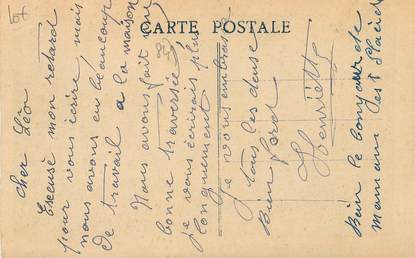 CARTE POSTALE
Cher Léo
Excusé mon retard
pour vous écrire mais
nous avons eu beaucoup
de travail a la maison
Nous avons fait une
bonne traversée
je vous écrirais plus
longuement
je vous embrasse
tous les deux
bien fort
Henriette
Bien le bonjour de
maman des